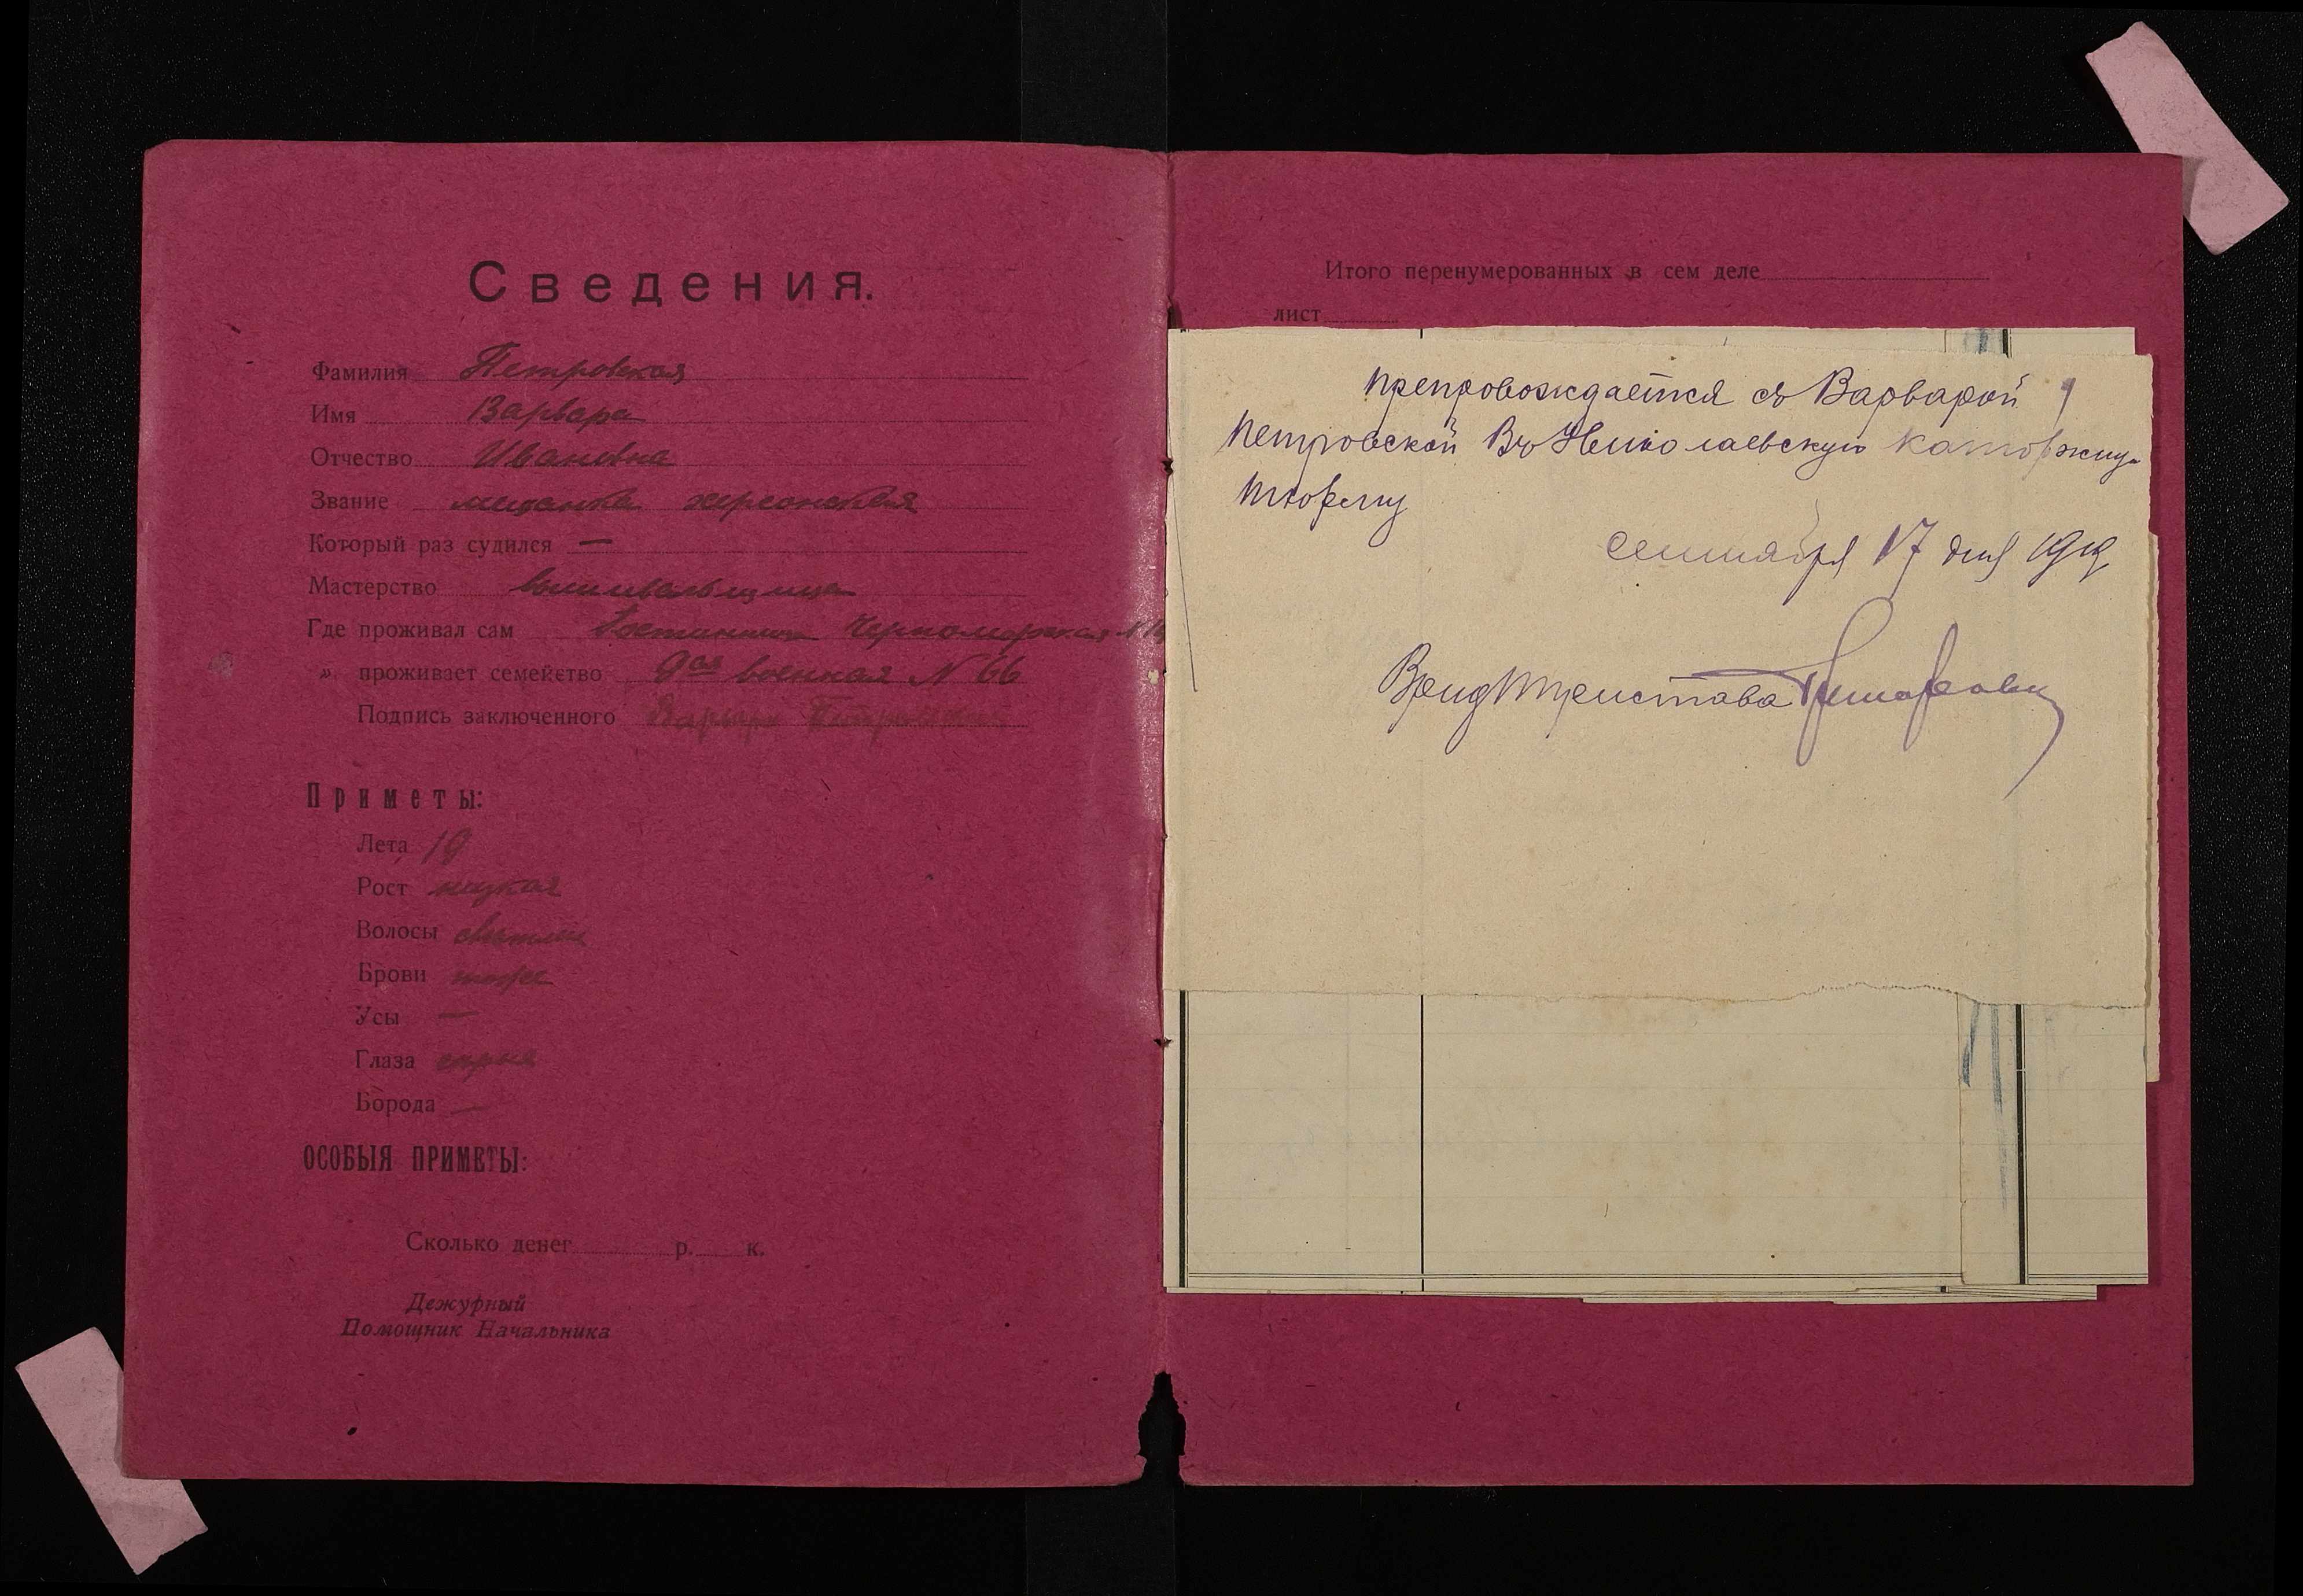 Сведения.
Фамилия Петровская
Имя Варвара
Отчество Ивановна
Звание мещанка херсонская
Который раз судился —
Мастерство вышивальщица
Где проживал сам Гостинница Черноморская N
„ проживает семейство 9ая военная N 66
Подпись заключенного Варвара Петровская
Приметы:
Лета 19
Рост низкая
Волосы светлые
Брови тоже
Усы —
Глаза серые
Борода —
ОСОБЫЯ ПРИМЕТЫ:
Сколько денег р. к.
Дежурный
Помощник Начальника
Итого перенумерованных в сем деле
лист
препровождается съ Варварой
Петровской Въ Николаевскую каторжну-
тюрьму
сентября 17 дня 1919
Врид Пристава